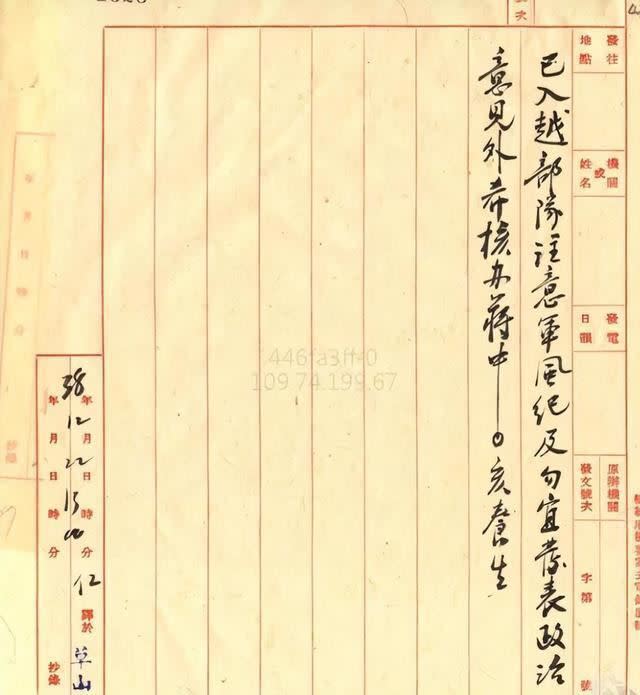 發往
地點
機關
或
姓名
發電
日韻
原辦機關
發文號次
字第 號
已入越部隊注意軍風紀及勿宜發表政治
意見外希核办蔣中一〇亥養生
446fa3ff-0
109.74.199.67
38年12月22日15時00分 仁 譯於 草山
年月日時分 抄錄